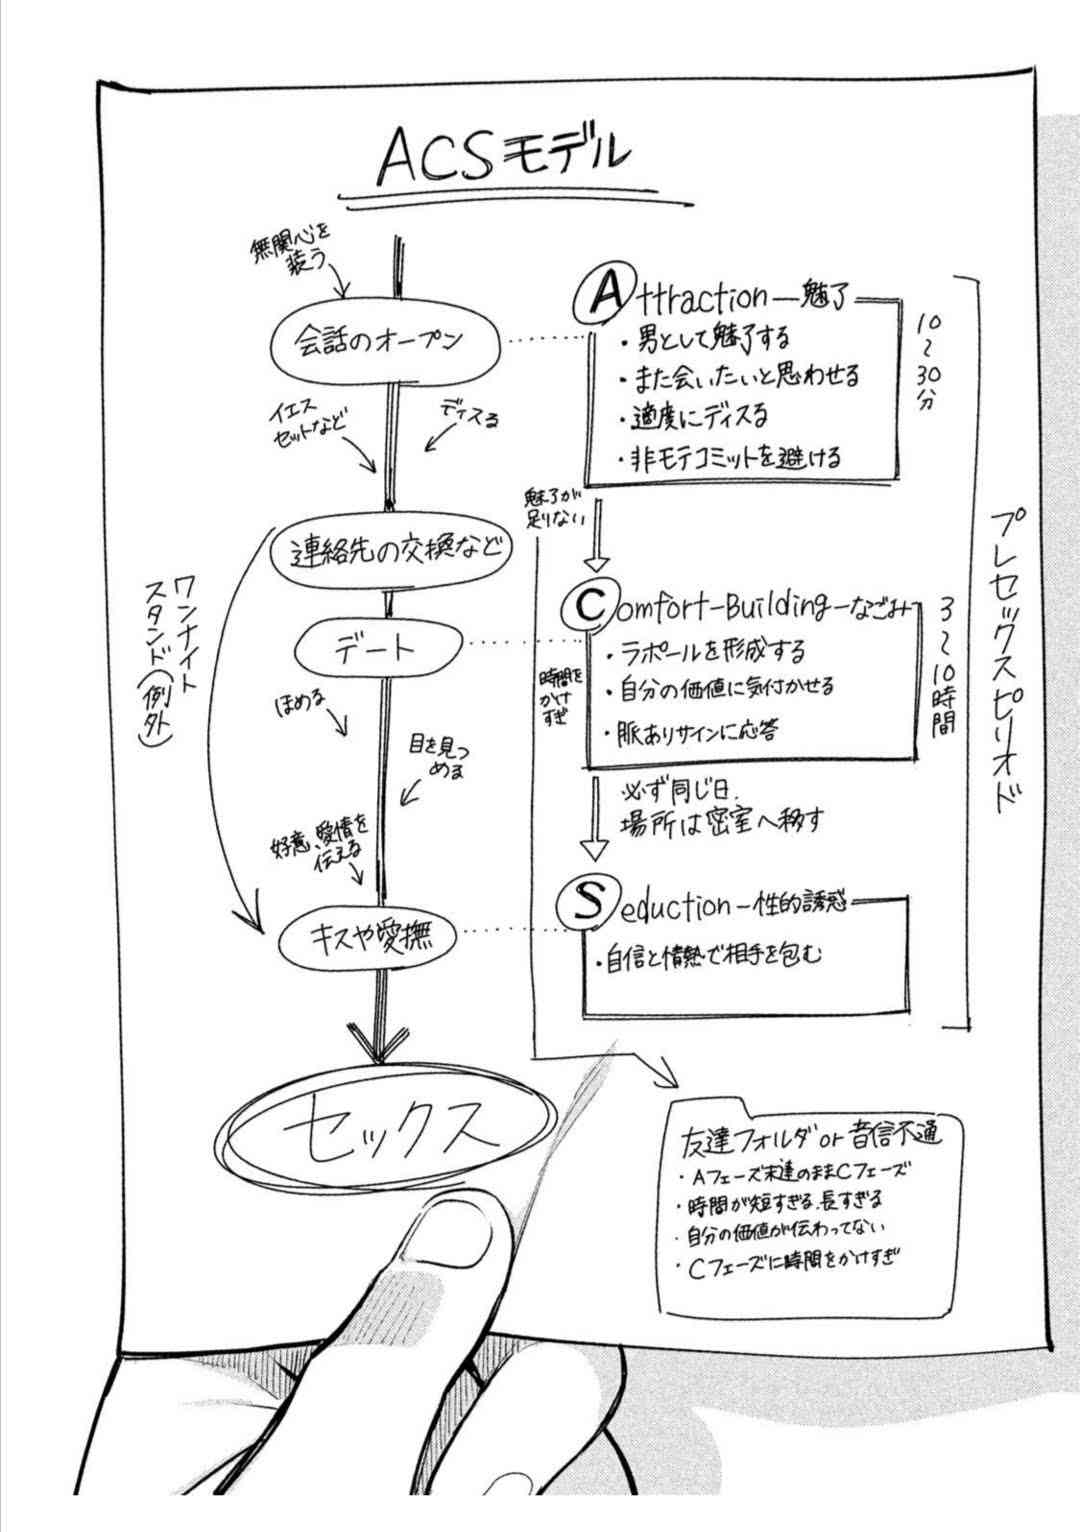 ACSモデル
無関心を
装う
会話のオープン
イエス
セットなど
ディスる
連絡先の交換など
デート
ワンナイト
スタンド(例外)
ほめる
目を見つ
める
好意、愛情を
伝える
キスや愛撫
セックス
Attraction―魅了
・男として魅了する
・また会いたいと思わせる
・適度にディスる
・非モテコミットを避ける
10〜30分
魅了が
足りない
Comfort-Building―なごみ
・ラポールを形成する
・自分の価値に気付かせる
・脈ありサインに応答
3〜10時間
時間を
かけ
すぎ
必ず同じ日.
場所は密室へ移す
Seduction―性的誘惑
・自信と情熱で相手を包む
プレセックスピリオド
友達フォルダor音信不通
・Aフェーズ未達のままCフェーズ
・時間が短すぎる、長すぎる
・自分の価値が伝わってない
・Cフェーズに時間をかけすぎ